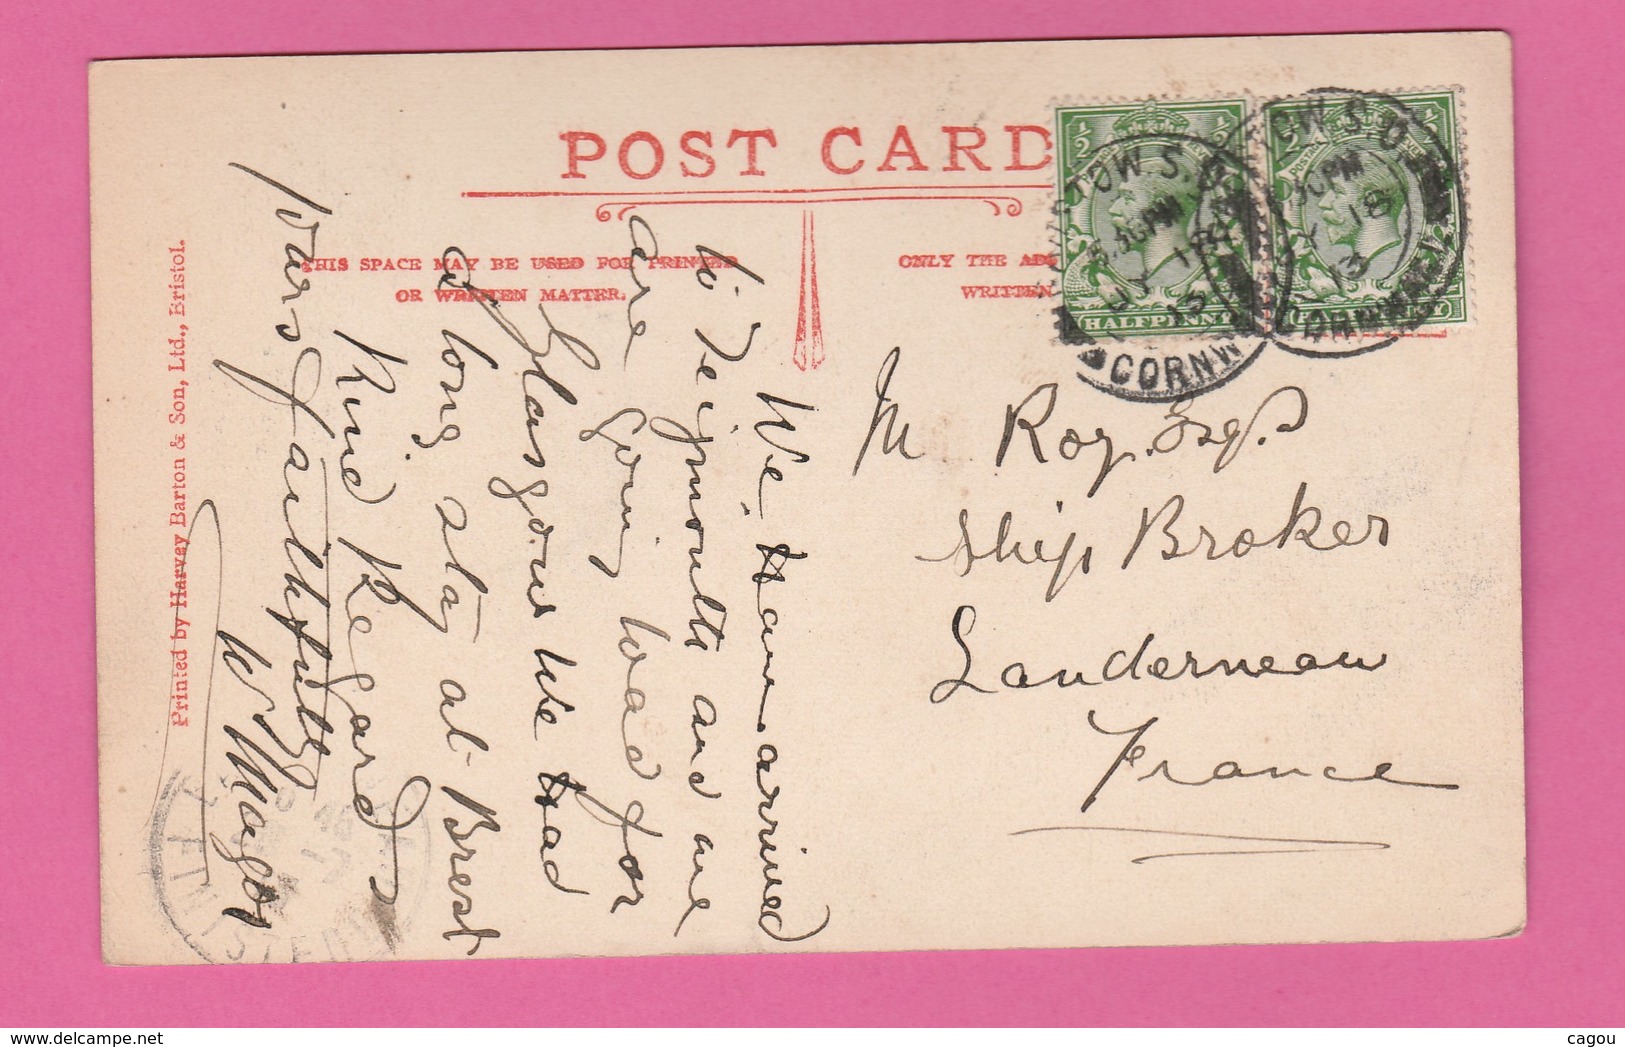 POST CARD
THIS SPACE MAY BE USED FOR PRINTED
OR WRITTEN MATTER.
ONLY THE AD
WRITTEN
HALFPENNY
HALFPENNY
STOW S.O.
5.30PM
JY 18
13
CORNW
OW S.O.
30PM
18
13
CORNWALL
M Roy. Esq.
Ship Broker
Landerneau
France
We Have arrived
to Teignmouth and we
are going load for
Glasgow We Had
a long stay at Brest
Kind Regards
yours faithfully
W Magor
Printed by Harvey Barton & Son, Ltd., Bristol.
FINISTERE
cagou
www.delcampe.net